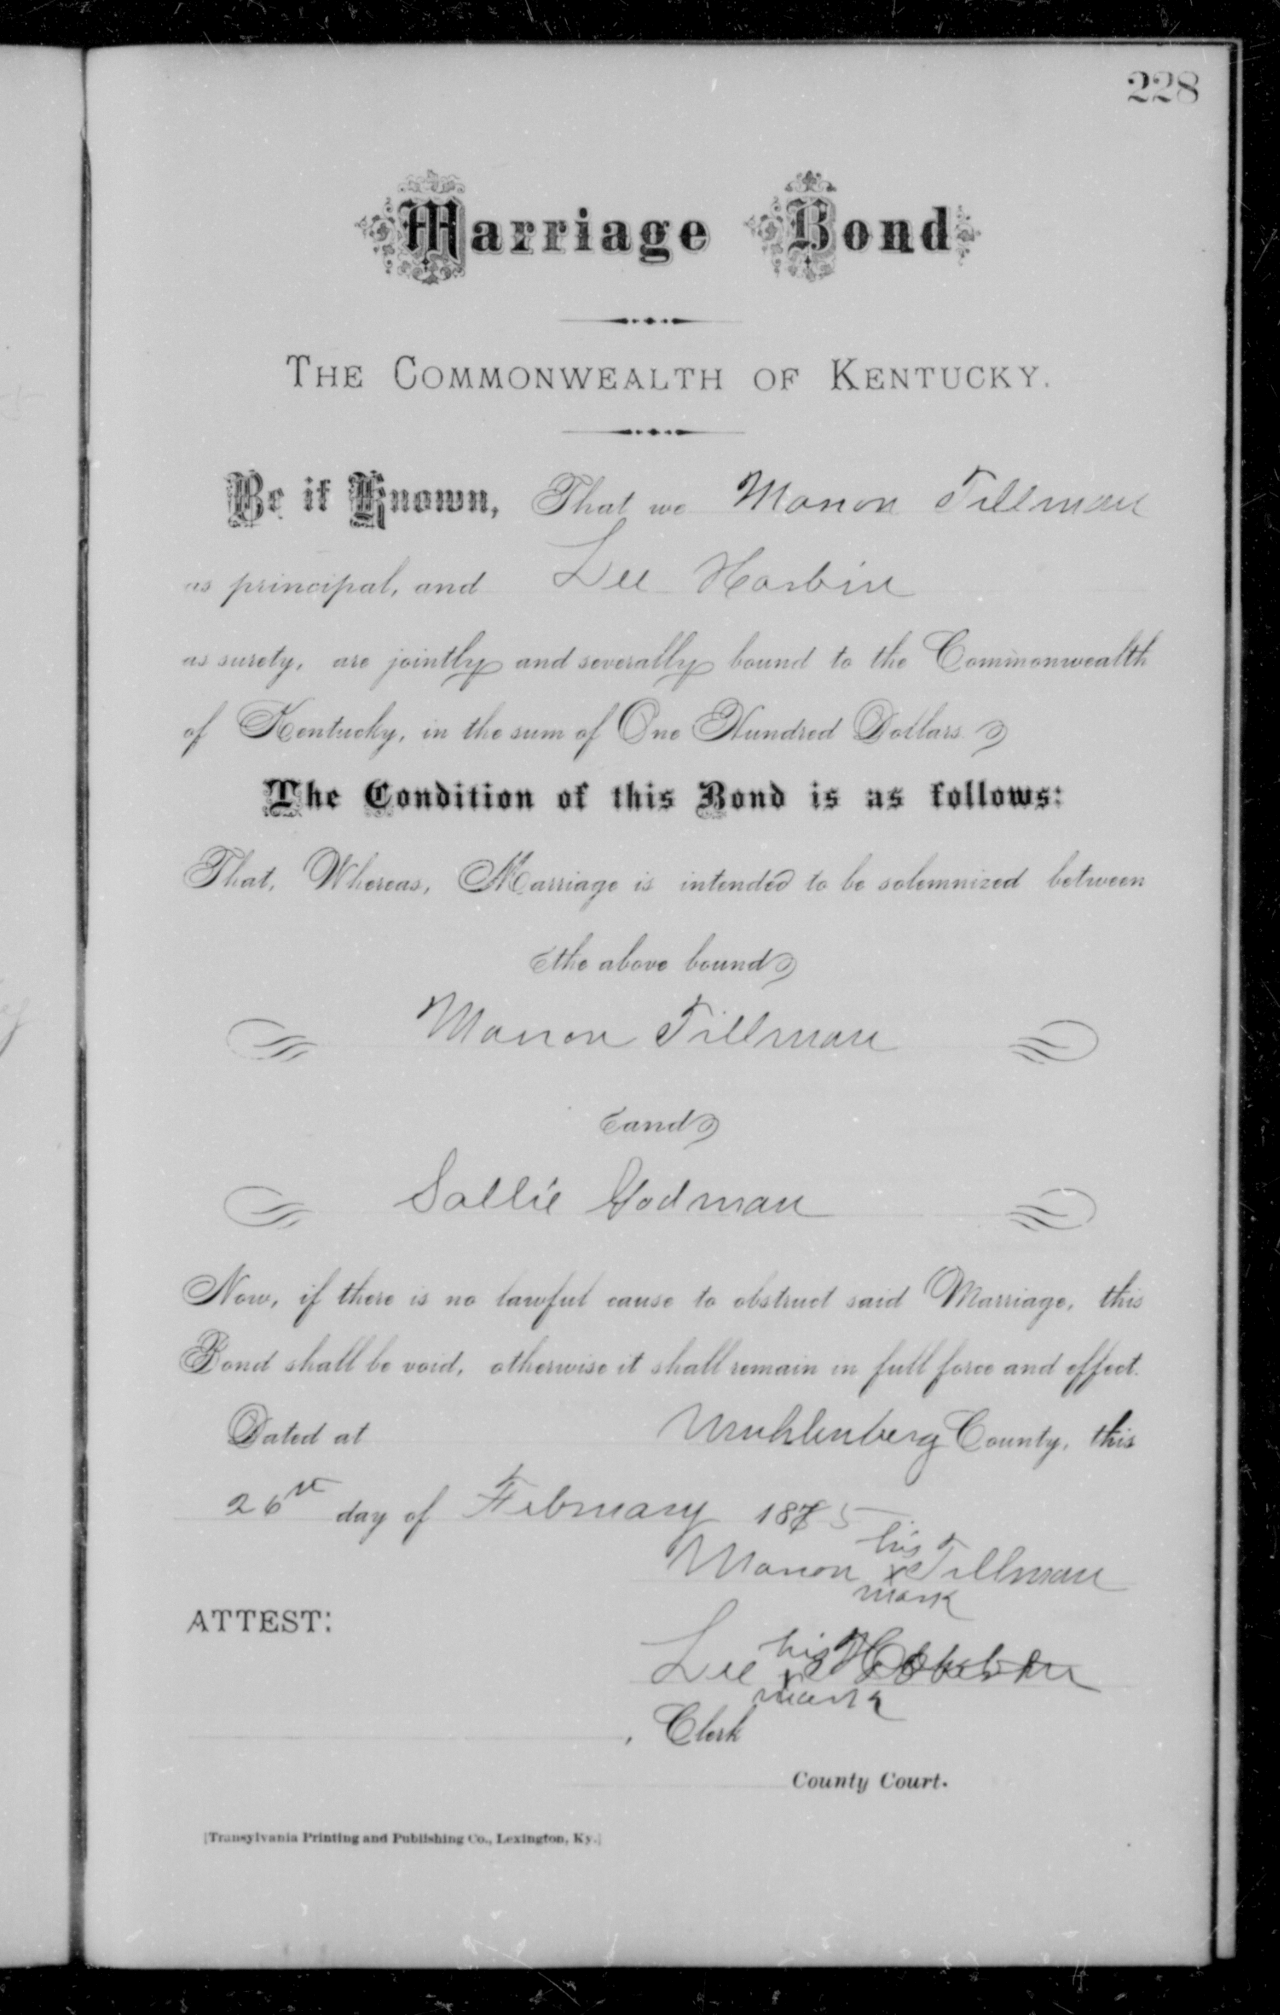 228
Marriage Bond
THE COMMONWEALTH OF KENTUCKY.
Be it Known, That we Manon Tillman
as principal, and Lee Harbin
as surety, are jointly and severally bound to the Commonwealth
of Kentucky, in the sum of One Hundred Dollars.
The Condition of this Bond is as follows:
That, Whereas, Marriage is intended to be solemnized between
the above bound
Manon Tillman
and
Sallie Godman
Now, if there is no lawful cause to obstruct said Marriage, this
Bond shall be void, otherwise it shall remain in full force and effect.
Dated at Muhlenberg County, this
26st day of February 1885
his
Manon x Tillman
mark
ATTEST:
his
Lee x
mark
, Clerk
County Court.
[Transylvania Printing and Publishing Co., Lexington, Ky.]